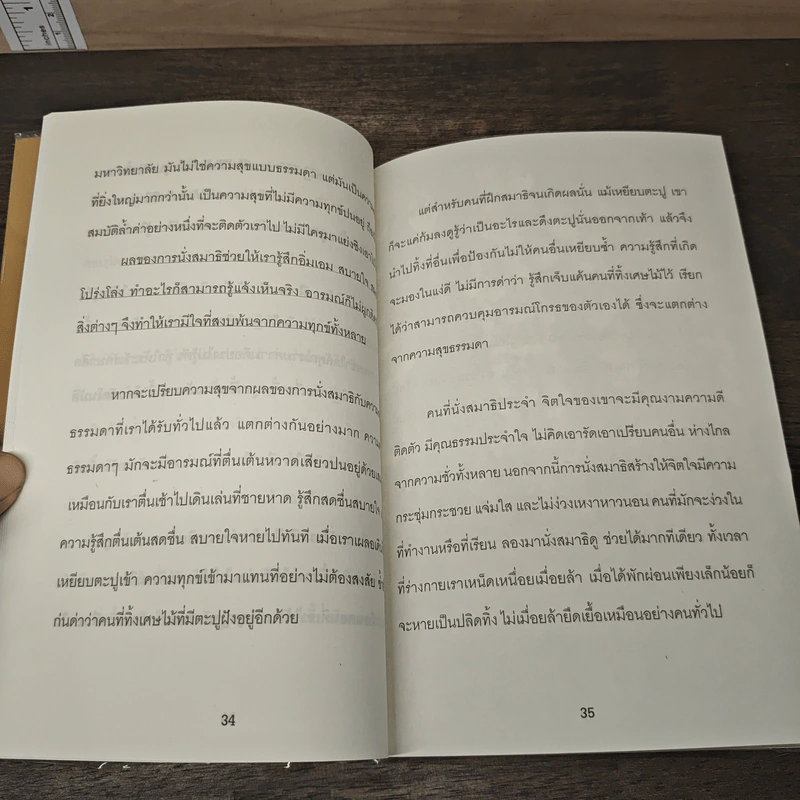 มหาวิทยาลัย มันไม่ใช่ความสุขแบบธรรมดา แต่มันเป็น
ที่ยิ่งใหญ่มากกว่านั้น เป็นความสุขที่ไม่มีความทุกข์ปนอยู่
สมบัติล้ำค่าอย่างหนึ่งที่จะติดตัวเราไป ไม่มีใครมาแย่งชิง
ผลของการนั่งสมาธิช่วยให้เรารู้สึกอิ่มเอม สบายใจ
โปร่งโล่ง ทำอะไรก็สามารถรู้แจ้งเห็นจริง อารมณ์ก็ไม่
สิ่งต่างๆ จึงทำให้เรามีใจที่สงบพ้นจากความทุกข์ทั้งหลาย
หากจะเปรียบความสุขจากผลของการนั่งสมาธิกับ
ธรรมดาที่เราได้รับทั่วไปแล้ว แตกต่างกันอย่างมาก
ธรรมดาๆ มักจะมีอารมณ์ที่ตื่นเต้นหวาดเสียวปนอยู่ด้วย
เหมือนกับเราตื่นเช้าไปเดินเล่นที่ชายหาด รู้สึกสดชื่นสบายใจ
ความรู้สึกตื่นเต้นสดชื่น สบายใจหายไปทันที เมื่อเราเผลอ
เหยียบตะปูเข้า ความทุกข์เข้ามาแทนที่อย่างไม่ต้องสงสัย
ก่นด่าว่าคนที่ทิ้งเศษไม้ที่มีตะปูฝังอยู่อีกด้วย
34
แต่สำหรับคนที่ฝึกสมาธิจนเกิดผลนั่น แม้เหยียบตะปู เขา
ก็จะแค่ก้มลงดูรู้ว่าเป็นอะไรและดึงตะปูนั่นออกจากเท้า แล้วจึง
นำไปทิ้งที่อื่นเพื่อป้องกันไม่ให้คนอื่นเหยียบซ้ำ ความรู้สึกที่เกิด
จะมองในแง่ดี ไม่มีการด่าว่า รู้สึกเจ็บแค้นคนที่ทิ้งเศษไม้ไว้ เรียก
ได้ว่าสามารถควบคุมอารมณ์โกรธของตัวเองได้ ซึ่งจะแตกต่าง
จากความสุขธรรมดา
คนที่นั่งสมาธิประจำ จิตใจของเขาจะมีคุณงามความดี
ติดตัว มีคุณธรรมประจำใจ ไม่คิดเอารัดเอาเปรียบคนอื่น ห่างไกล
จากความชั่วทั้งหลาย นอกจากนี้การนั่งสมาธิสร้างให้จิตใจมีความ
กระชุ่มกระชวย แจ่มใส และไม่ง่วงเหงาหาวนอน คนที่มักจะง่วงใน
ที่ทำงานหรือที่เรียน ลองมานั่งสมาธิดู ช่วยได้มากทีเดียว ทั้งเวลา
ที่ร่างกายเราเหน็ดเหนื่อยเมื่อยล้า เมื่อได้พักผ่อนเพียงเล็กน้อยก็
จะหายเป็นปลิดทิ้ง ไม่เมื่อยล้ายืดเยื้อเหมือนอย่างคนทั่วไป
35